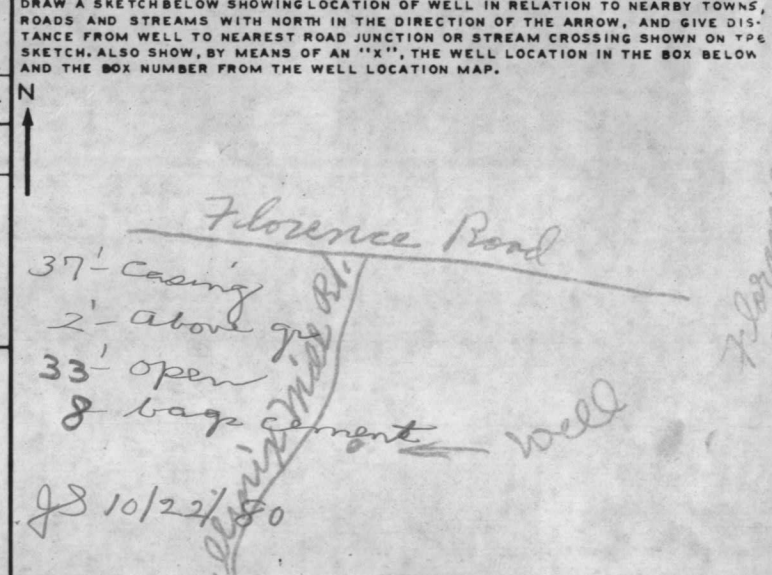 DRAW A SKETCH BELOW SHOWING LOCATION OF WELL IN RELATION TO NEARBY TOWNS,
ROADS AND STREAMS WITH NORTH IN THE DIRECTION OF THE ARROW, AND GIVE DIS-
TANCE FROM WELL TO NEAREST ROAD JUNCTION OR STREAM CROSSING SHOWN ON
SKETCH. ALSO SHOW, BY MEANS OF AN "X", THE WELL LOCATION IN THE BOX BELOW
AND THE BOX NUMBER FROM THE WELL LOCATION MAP.
N
Florence Road
37'- Casing
2'- above gr
33'- open
8- bags cement
Well
Mill Rd.
JS 10/22/80